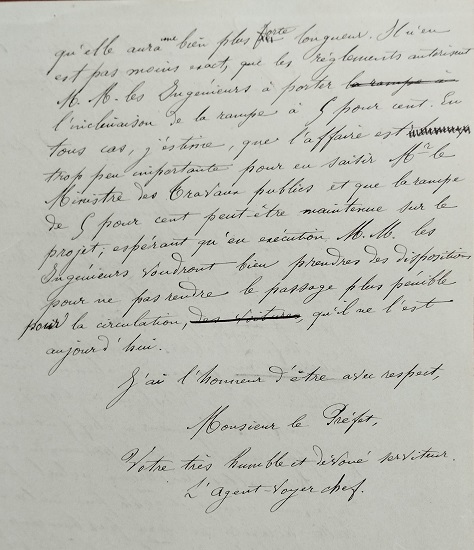 qu'elle aura une bien plus forte longueur. Il n'en
est pas moins exact, que les règlements autorisent
M. M. les Ingénieurs à porter la rampe à
l'inclinaison de la rampe à 5 pour cent. En
tous cas, j'estime, que l'affaire est
trop peu importante pour en saisir Mr le
Ministre des Travaux publics et que la rampe
de 5 pour cent peut-être maintenue sur le
projet, espérant qu'en exécution, M. M. les
Ingénieurs voudront bien prendre des dispositions
pour ne pas rendre le passage plus pénible
pour la circulation, des voitures, qu'il ne l'est
aujourd'hui.
J'ai l'honneur d'être avec respect,
Monsieur le Préfet,
Votre très humble et dévoué serviteur.
L'Agent-voyer chef.